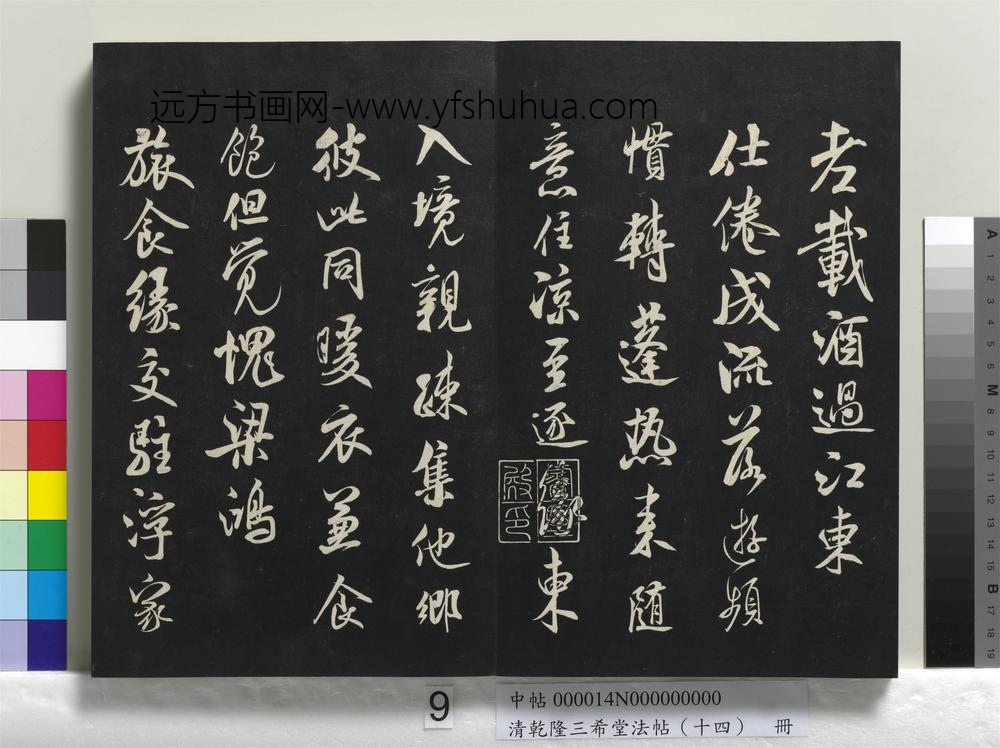 远方书画网-www.yfshuhua.com
老載酒過江東
仕倦成流落遊頻
慣轉蓬熱来随
意住涼至逐東
入境親疎集他鄉
彼此同暖衣兼食
飽但覺愧梁鴻
旅食緣交駐浮家
9
中帖 000014N000000000
清乾隆三希堂法帖（十四） 冊
A
1
2
3
4
5
6
M
8
9
10
11
12
13
14
15
B
17
18
19